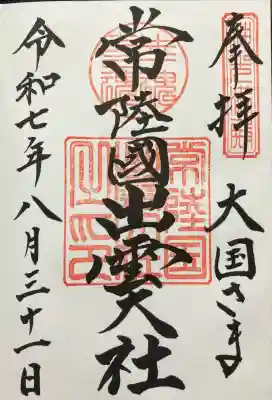 奉拝
大国さま
常陸國出雲大社
令和七年八月三十一日